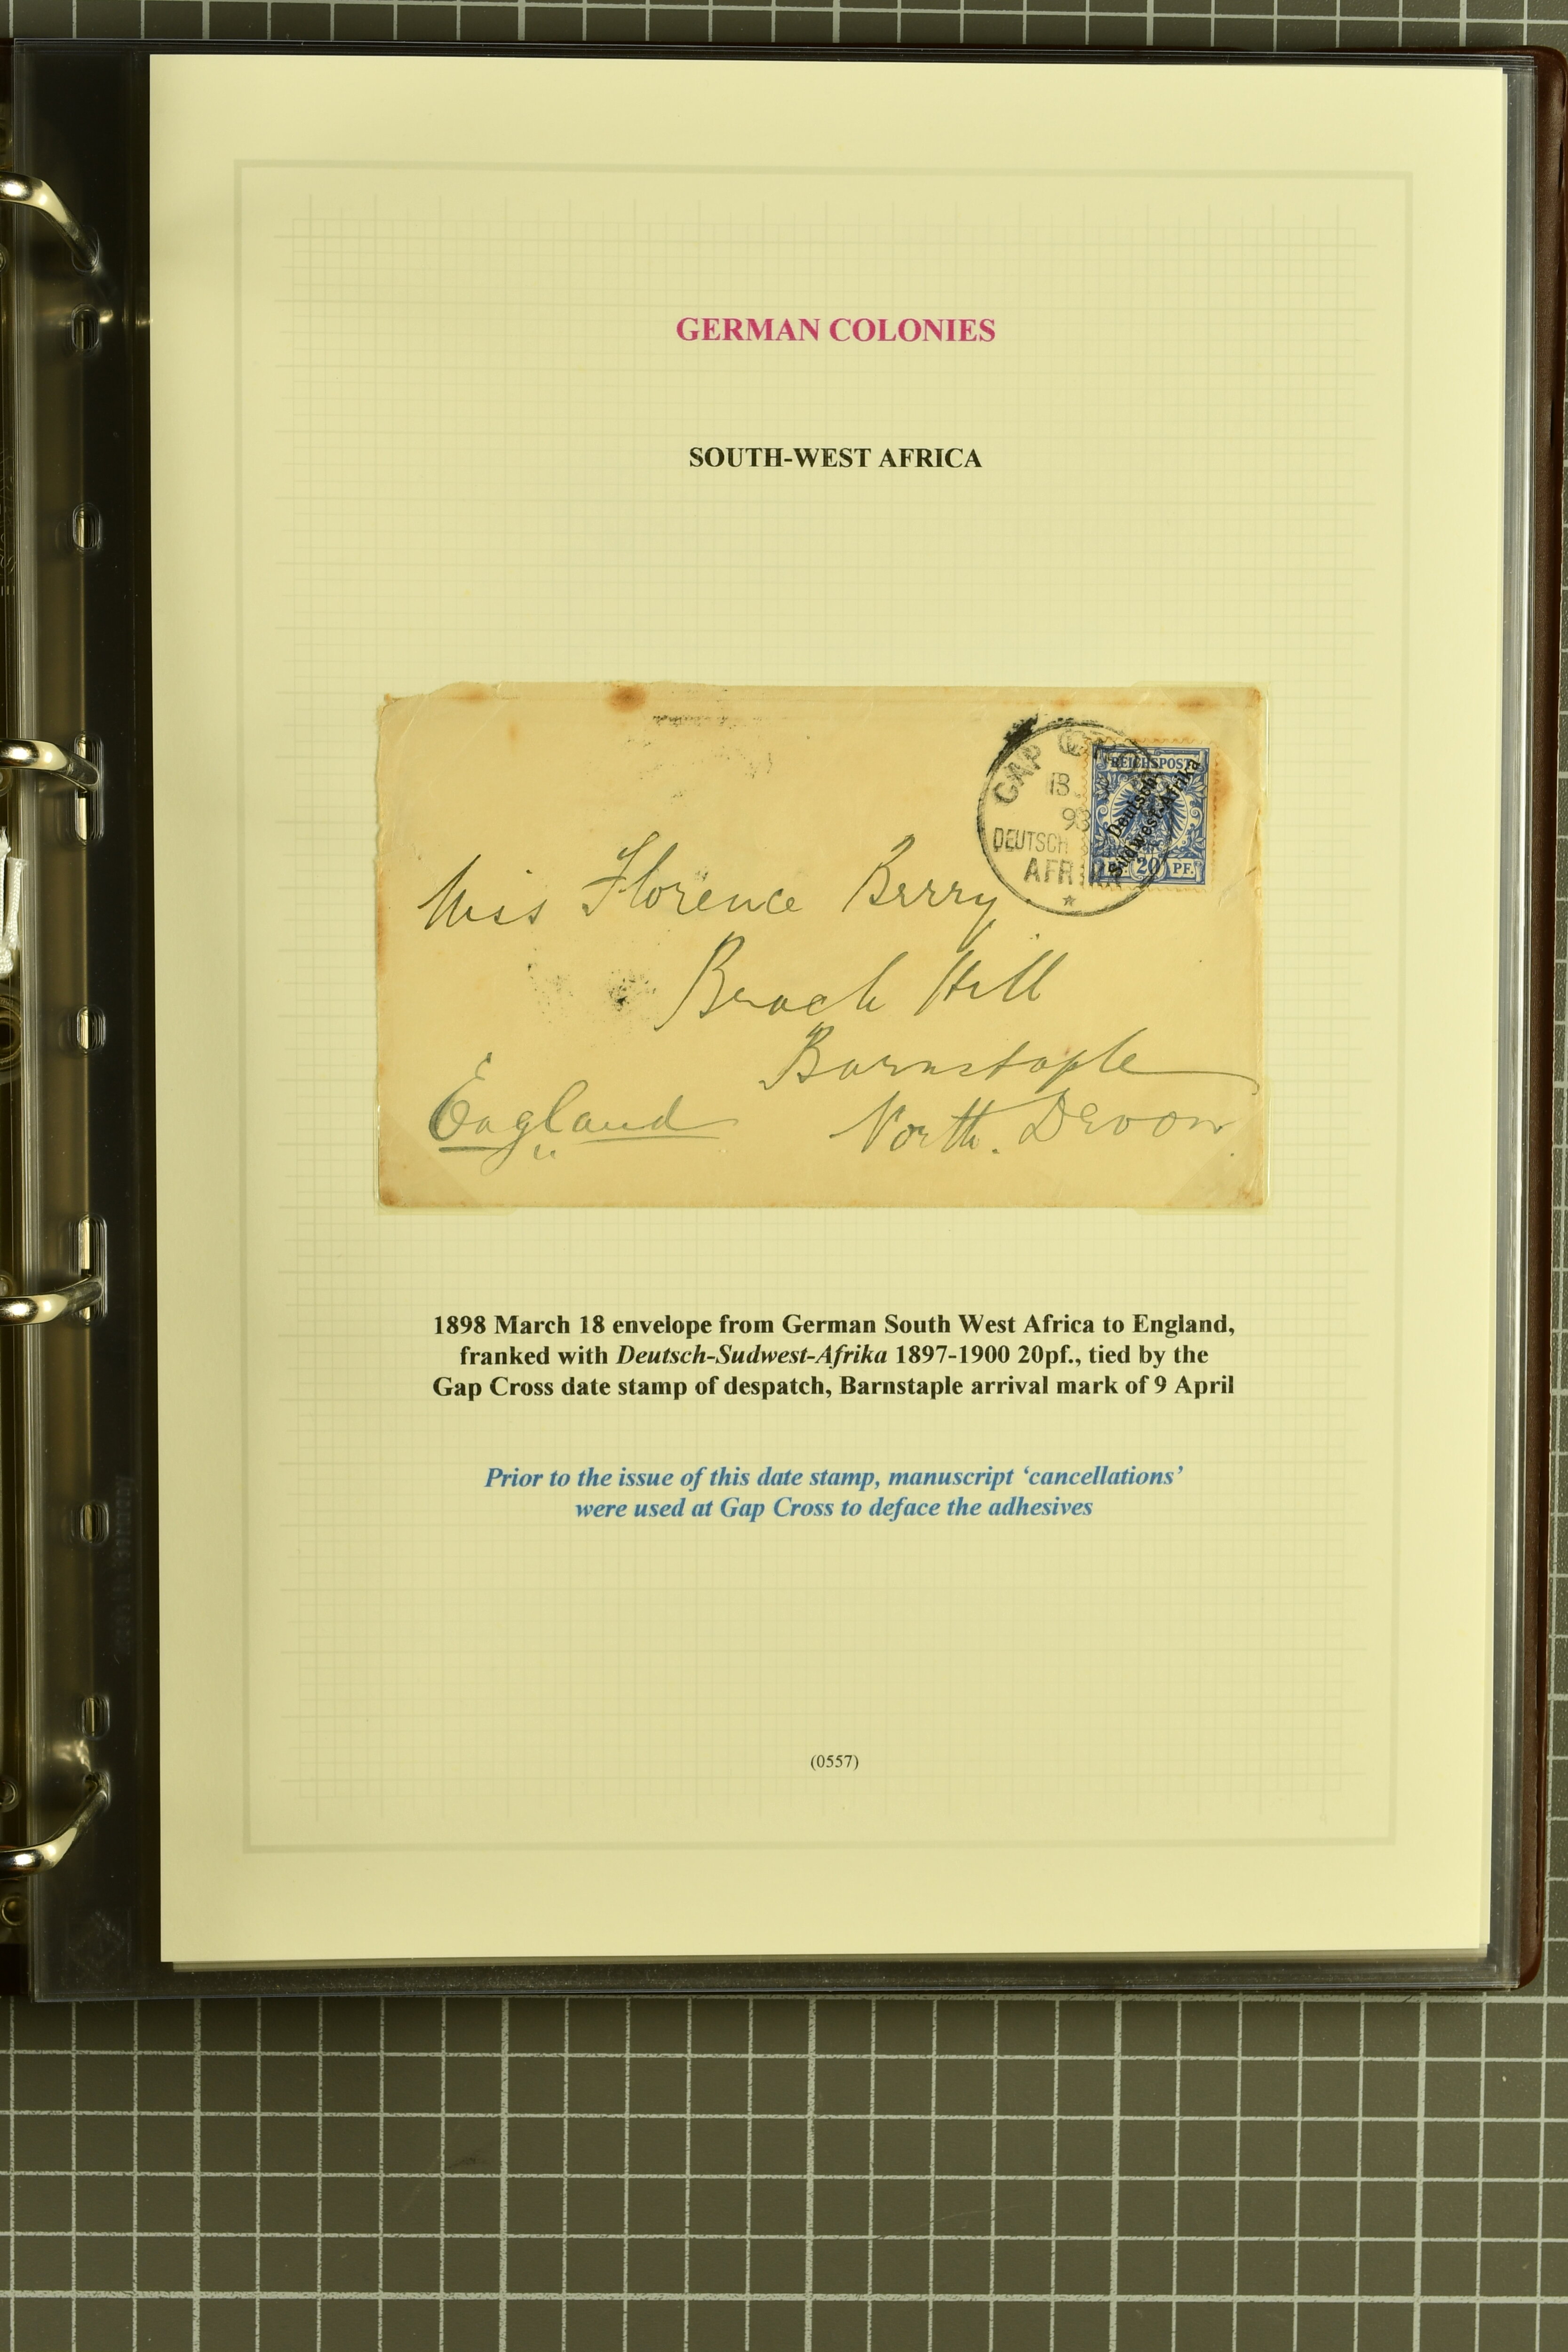 GERMAN COLONIES
SOUTH-WEST AFRICA
CAP
18
98
DEUTSCH
AFRIKA
REICHSPOST
Deutsch-
Südwest-Afrika
20 PF.
Miss Florence Berry
Beach Hill
Barnstaple
England
North. Devon
1898 March 18 envelope from German South West Africa to England,
franked with Deutsch-Sudwest-Afrika 1897-1900 20pf., tied by the
Gap Cross date stamp of despatch, Barnstaple arrival mark of 9 April
Prior to the issue of this date stamp, manuscript ‘cancellations’
were used at Gap Cross to deface the adhesives
(0557)